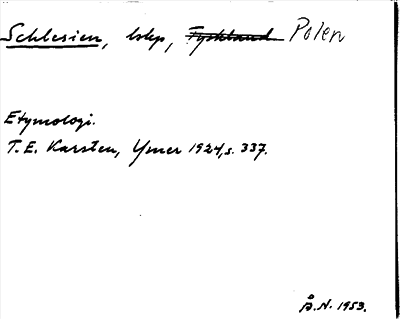 Schlesien, lskp, Tyskland Polen
Etymologi.
T.E. Karsten, Ymer 1924, s. 337.
Å.N. 1953.